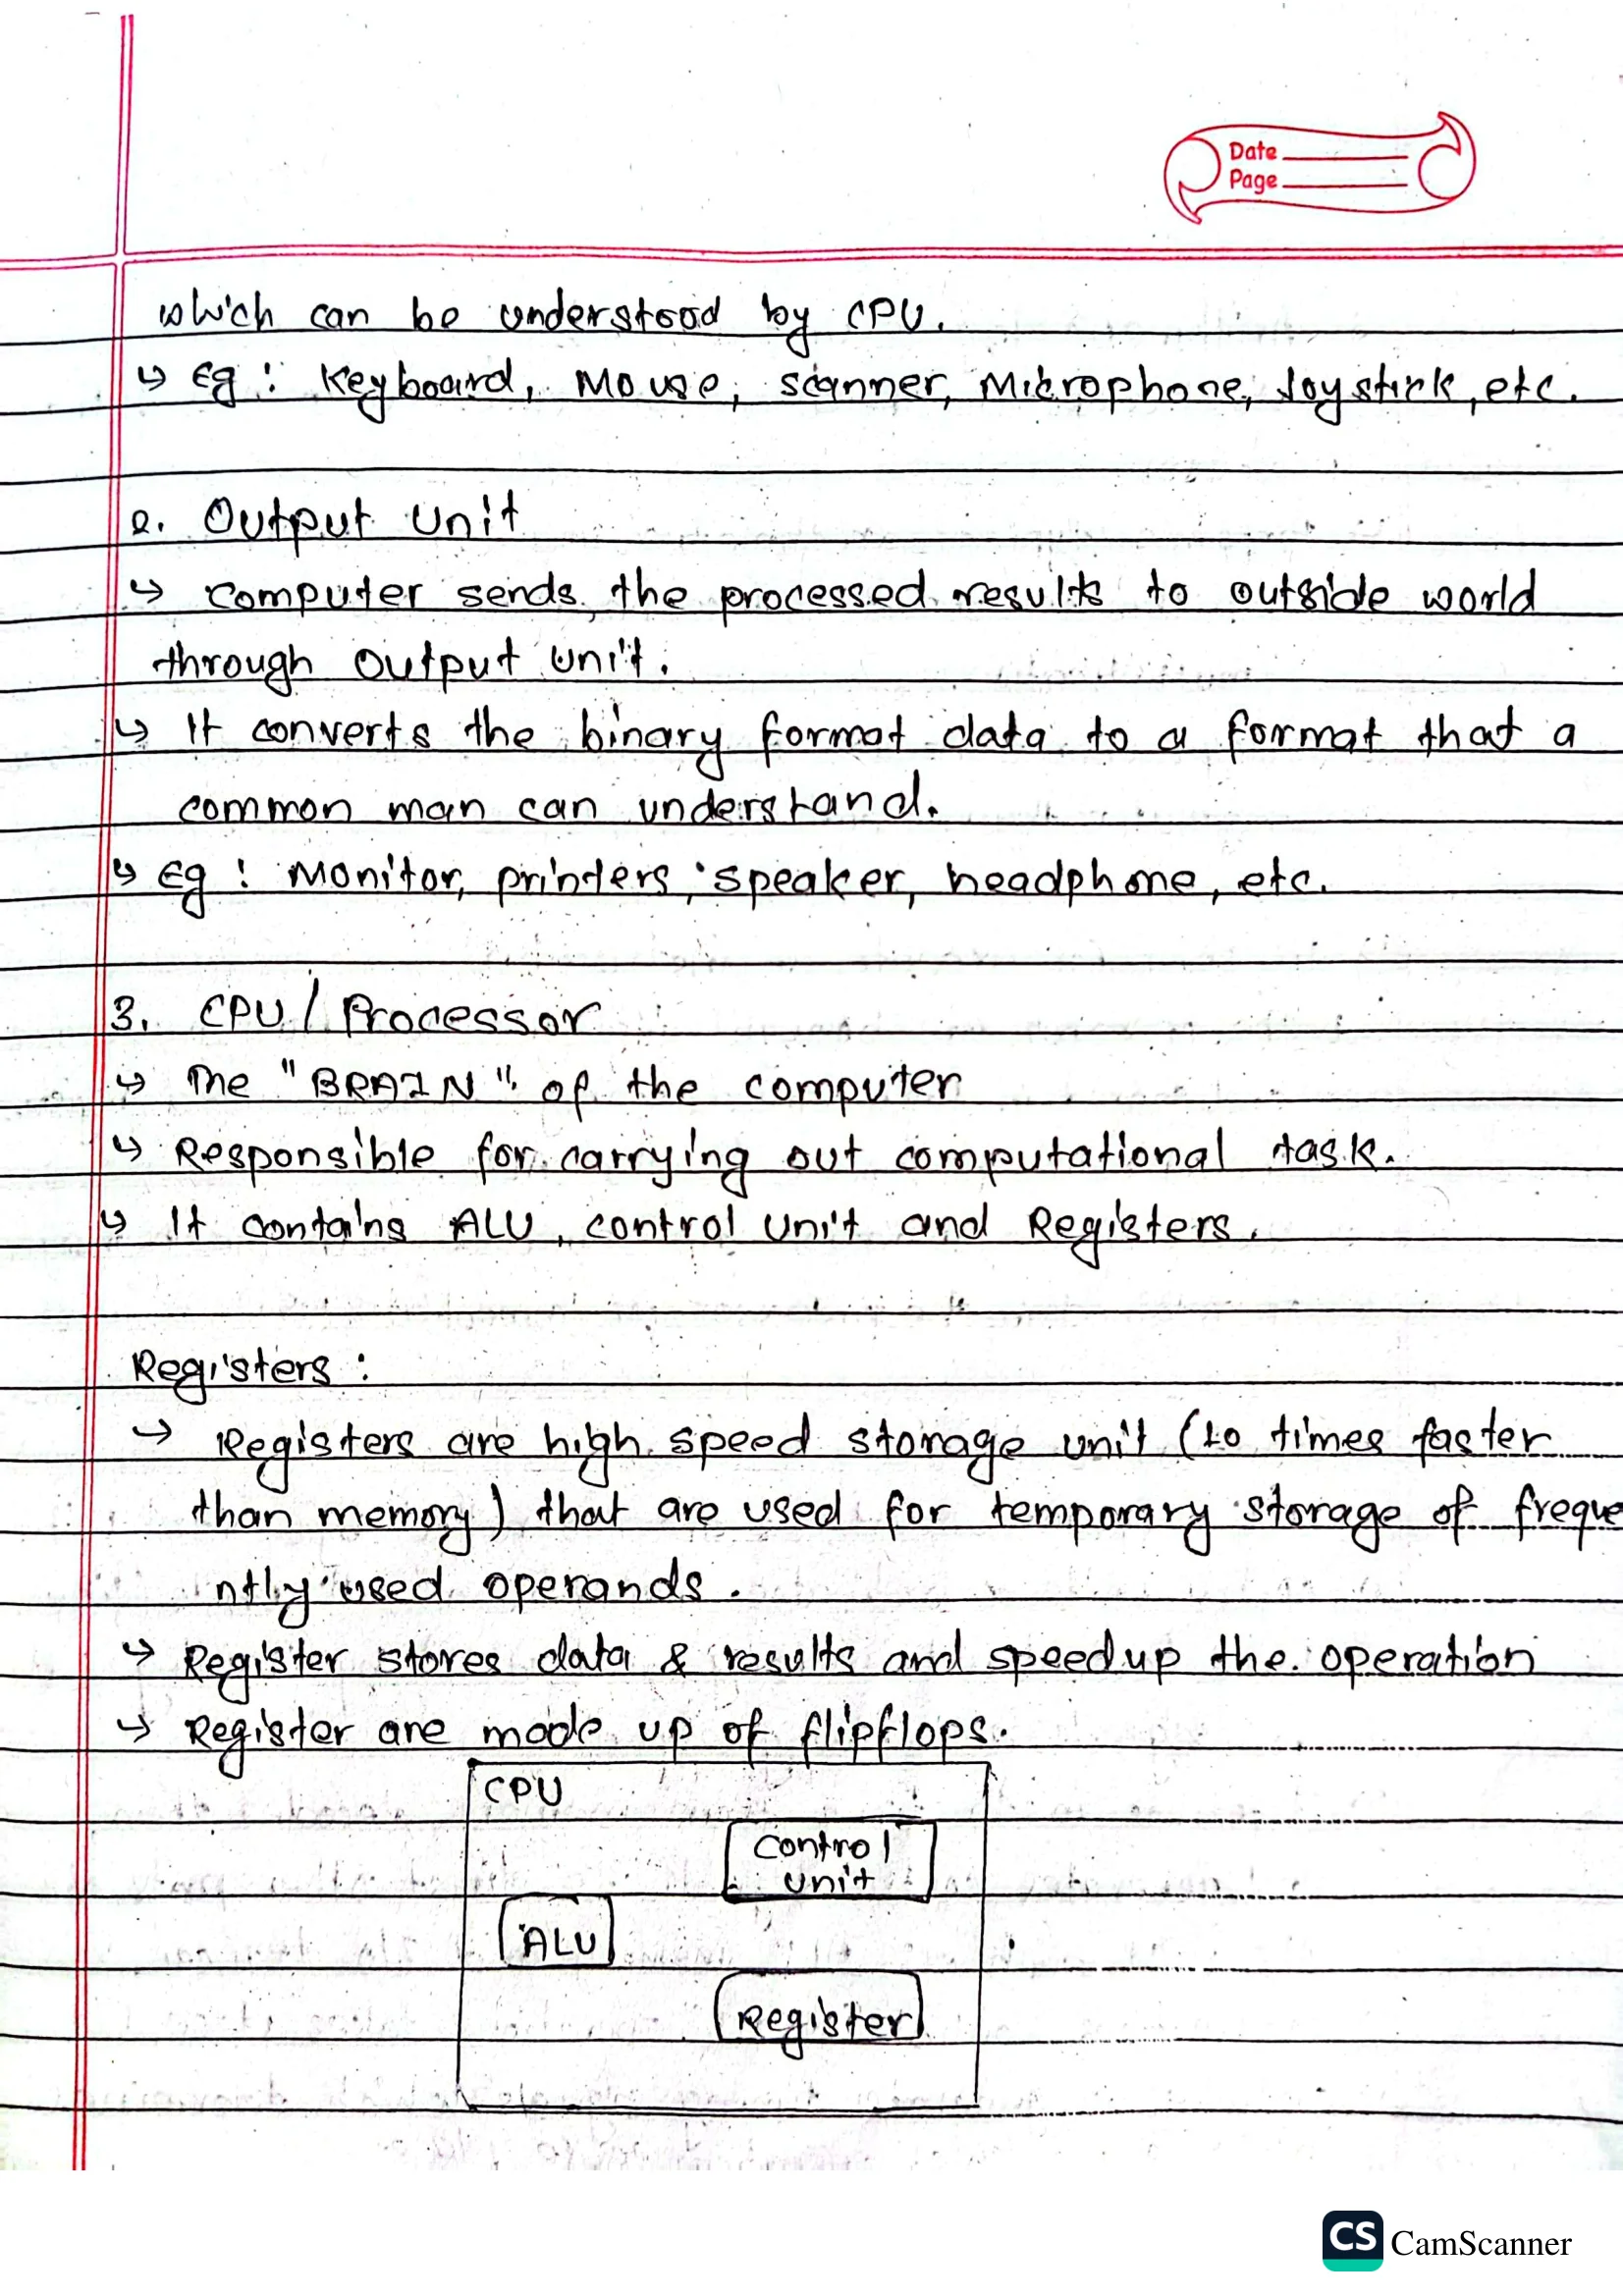 Date
Page
which can be understood by CPU.
↳ Eg : Keyboard, Mouse, scanner, Microphone, Joystick, etc.
2. Output Unit
↳ computer sends the processed results to outside world
through Output Unit.
↳ It converts the binary format data to a format that a
common man can understand.
↳ Eg : Monitor, printers, speaker, headphone, etc.
3. CPU / Processor
↳ The "BRAIN" of the computer
↳ Responsible for carrying out computational task.
↳ It contains ALU, control unit and Registers.
Registers :
↳ Registers are high speed storage unit (10 times faster
than memory) that are used for temporary storage of freque
ntly used operands.
↳ Register stores data & results and speedup the operation
↳ Register are made up of flipflops.
CPU
Control
unit
ALU
Register
CS CamScanner